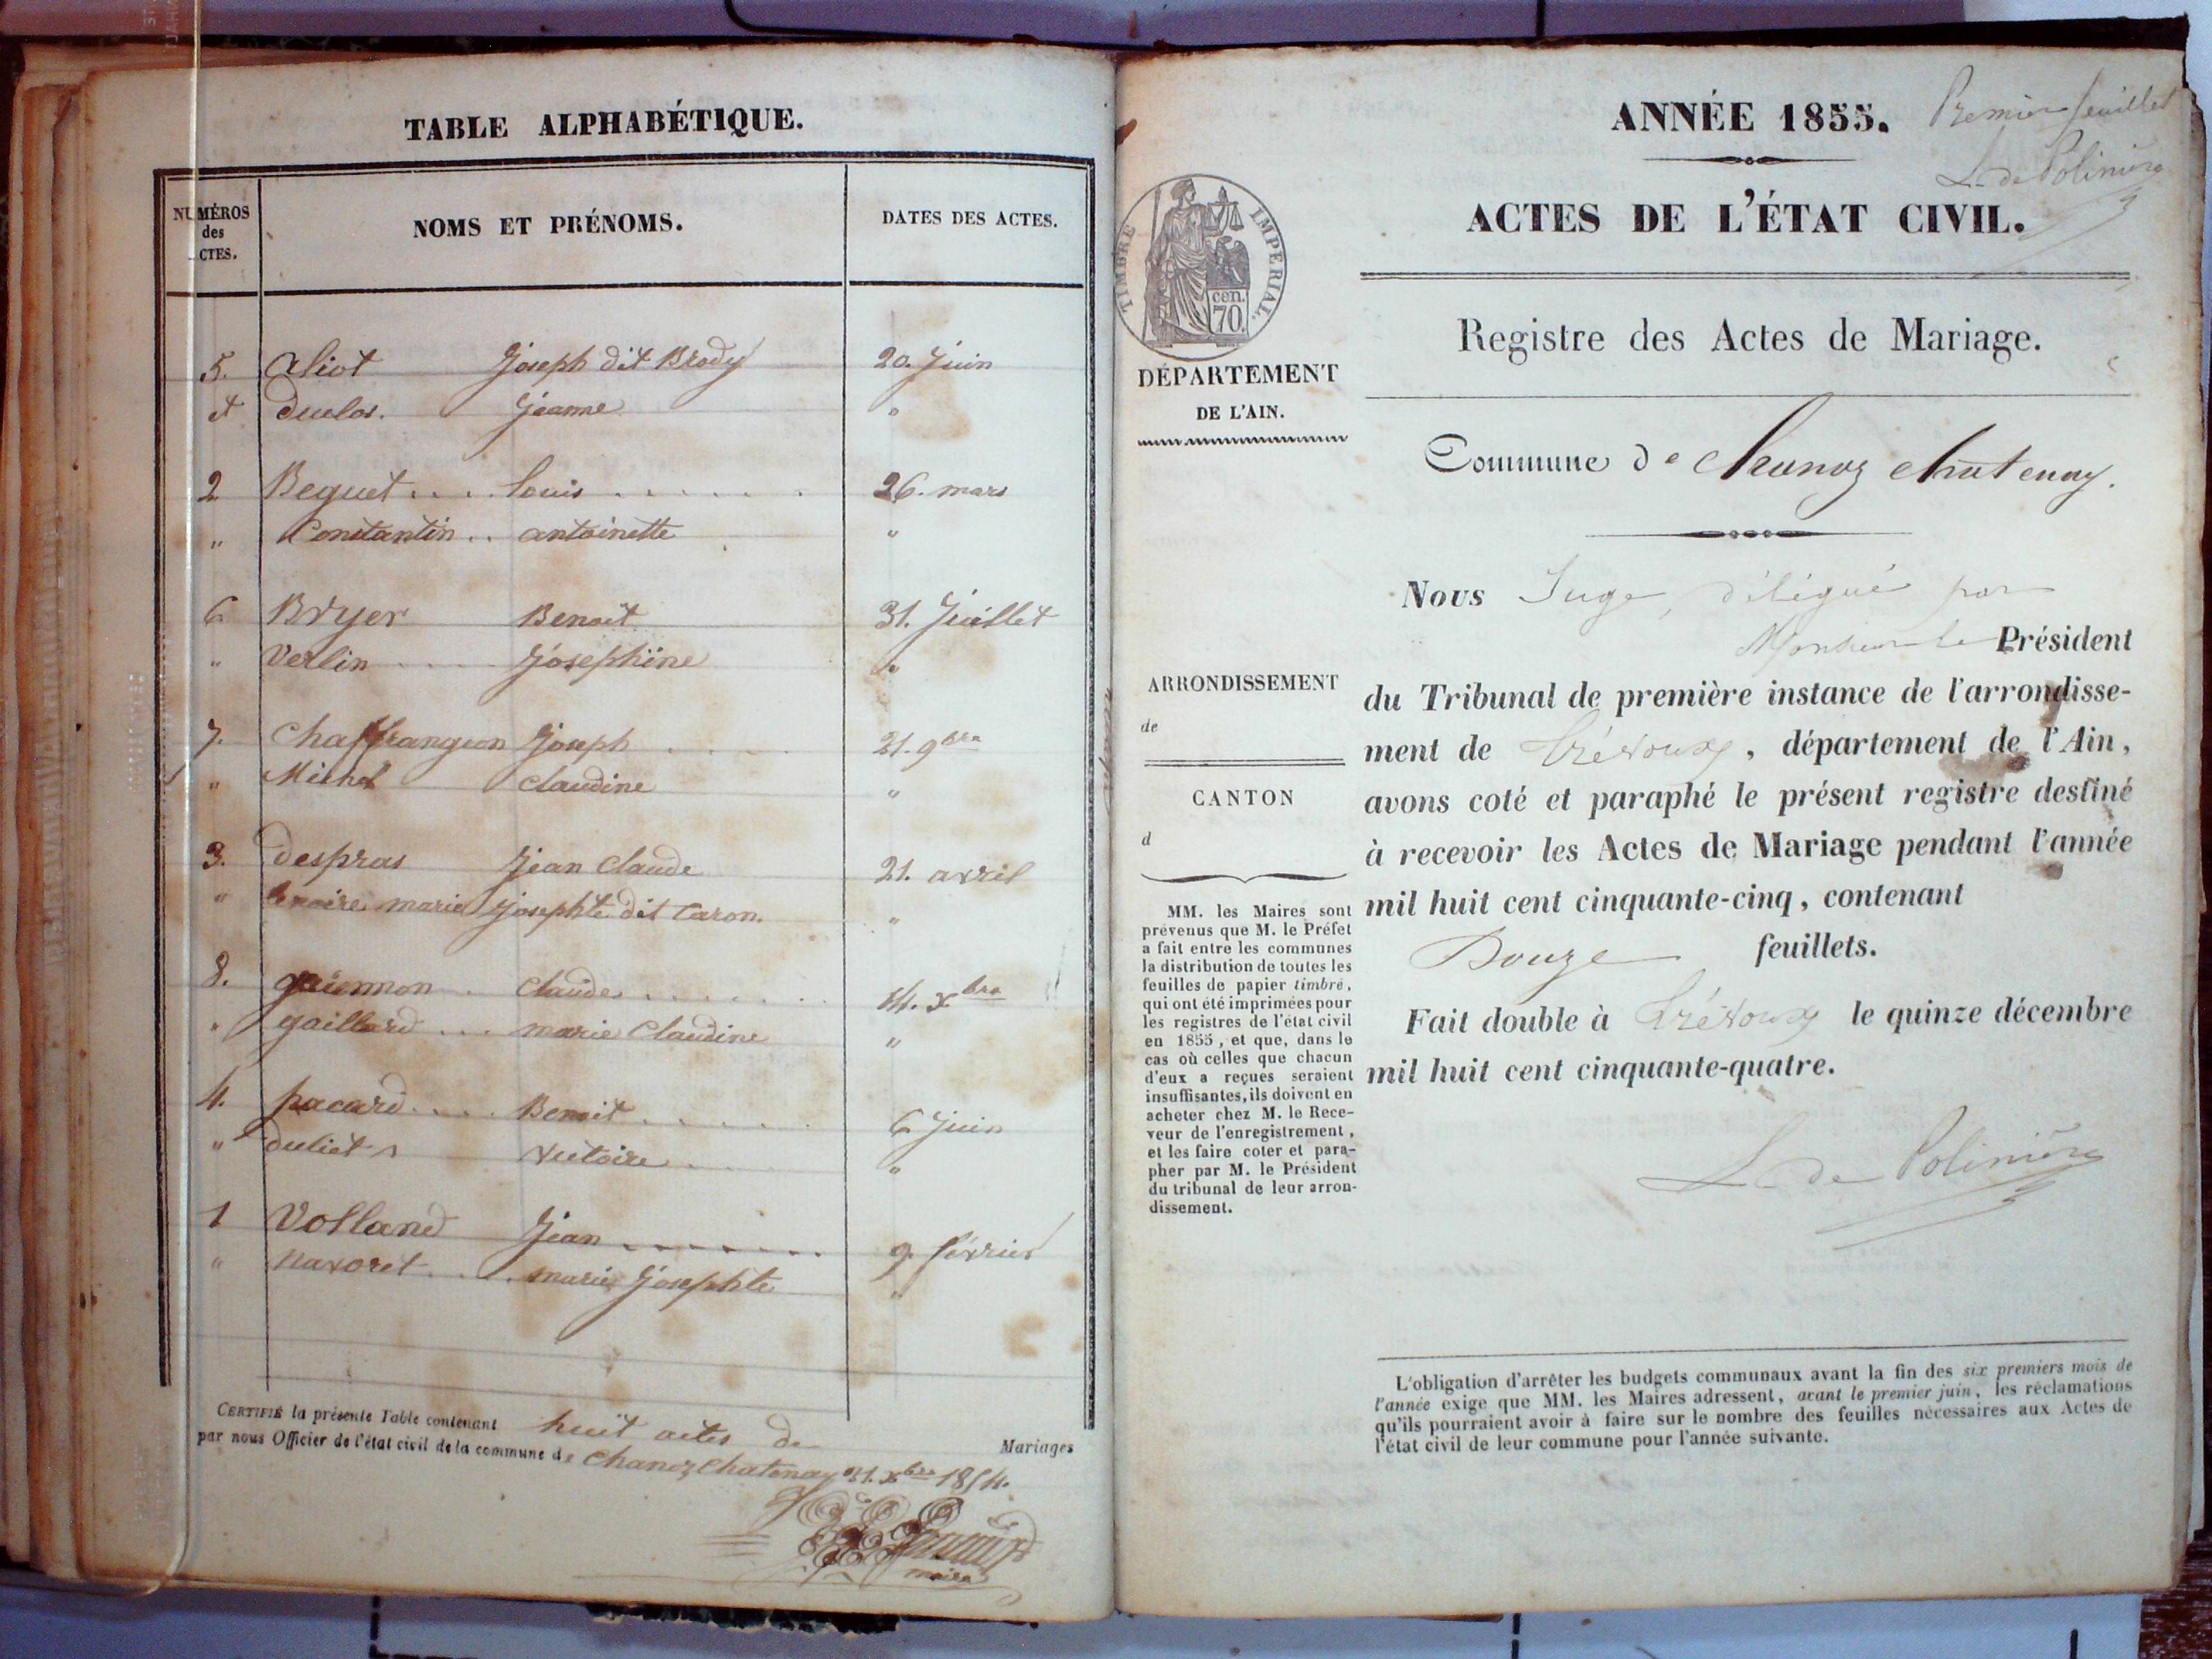 TABLE ALPHABÉTIQUE.
NUMÉROS
des
ACTES.
NOMS ET PRÉNOMS.
DATES DES ACTES.
5. aliot Joseph dit Brody 20. Juin
et duclos. Jeanne "
2 Beguet .... louis ...... 26. mars
" Constantin .. antoinette "
6 Bryer Benoit 31. Juillet
" Verlin .... Joséphine "
7. Chaffrangeon Joseph .... 21. 9bre
" Michel Claudine "
3. despras Jean Claude 21. avril
" lenoire marie Josephte dit Caron. "
8. guionnon . Claude ...... 14. xbre
" gaillard ... marie Claudine "
4. pacard .... Benoit ...... 6 Juin
" duliet victoire .... "
1 Volland Jean ....... 9. février
" Navoret .... marie Josephte "
CERTIFIÉ la présente Table contenant huit actes de Mariages
par nous Officier de l'état civil de la commune de Chanoz Chatenay 31. xbre 1854.
maire
ANNÉE 1855.
Premier feuillet
L. de Polinière
ACTES DE L'ÉTAT CIVIL.
TIMBRE IMPERIAL.
cen.
70.
DÉPARTEMENT
DE L'AIN.
Registre des Actes de Mariage.
Commune de Chanoz Chatenay.
Nous Juge, délégué par
Monsieur le Président
du Tribunal de première instance de l'arrondisse-
ment de Trévoux, département de l'Ain,
avons coté et paraphé le présent registre destiné
à recevoir les Actes de Mariage pendant l'année
mil huit cent cinquante-cinq, contenant
Douze feuillets.
Fait double à Trévoux le quinze décembre
mil huit cent cinquante-quatre.
L. de Polinière
ARRONDISSEMENT
de
CANTON
d
MM. les Maires sont
prévenus que M. le Préfet
a fait entre les communes
la distribution de toutes les
feuilles de papier timbré,
qui ont été imprimées pour
les registres de l'état civil
en 1855, et que, dans le
cas où celles que chacun
d'eux a reçues seraient
insuffisantes, ils doivent en
acheter chez M. le Rece-
veur de l'enregistrement,
et les faire coter et para-
pher par M. le Président
du tribunal de leur arron-
dissement.
L'obligation d'arrêter les budgets communaux avant la fin des six premiers mois de
l'année exige que MM. les Maires adressent, avant le premier juin, les réclamations
qu'ils pourraient avoir à faire sur le nombre des feuilles nécessaires aux Actes de
l'état civil de leur commune pour l'année suivante.